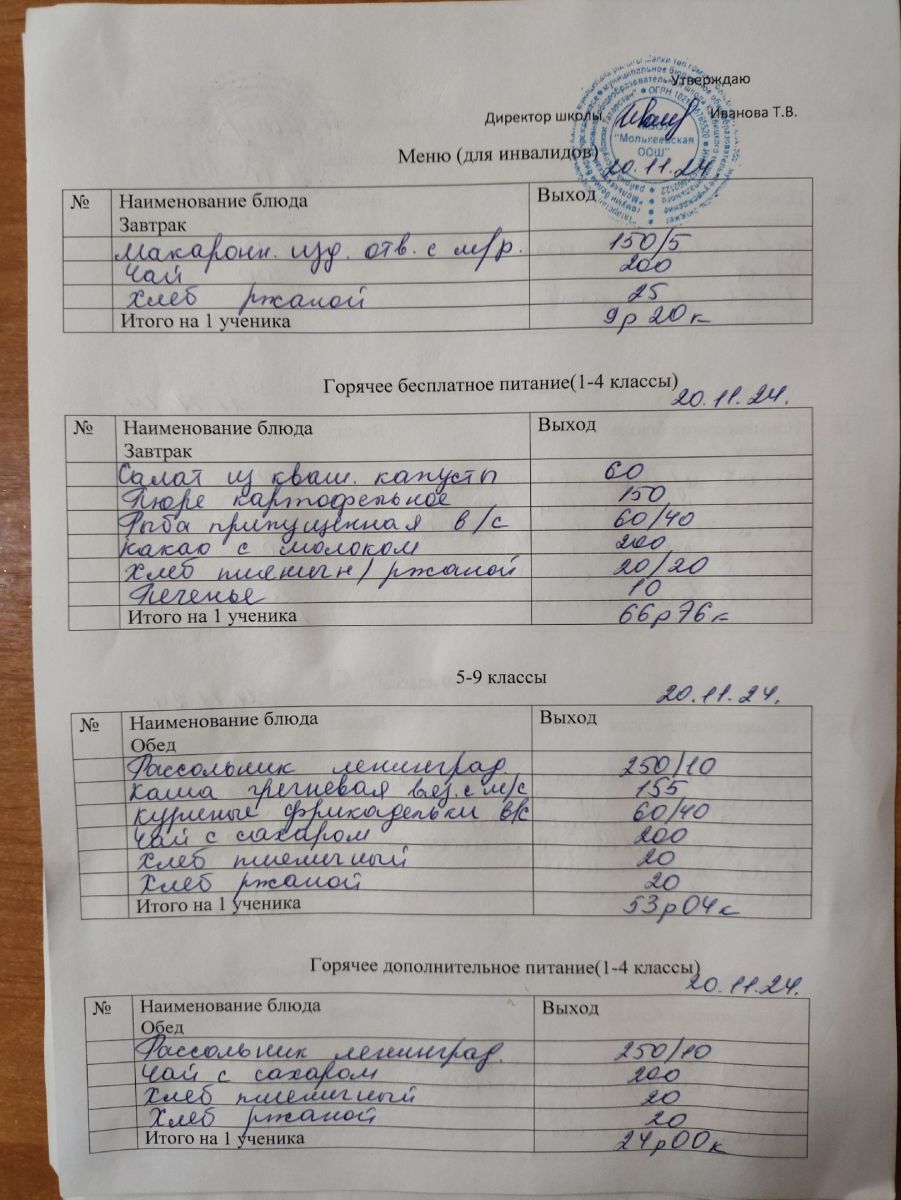 Утверждаю
Директор школы Иванова Т.В.
"Молькеевская
ОСШ"
Меню (для инвалидов) 20.11.24
№ Наименование блюда Выход
Завтрак
Макаронн. изд. отв. с м/р. 150/5
Чай 200
Хлеб ржаной 25
Итого на 1 ученика 9р 20к
Горячее бесплатное питание(1-4 классы)
20.11.24.
№ Наименование блюда Выход
Завтрак
Салат из кваш. капусты 60
Пюре картофельное 150
Рыба припущенная в/с 60/40
Какао с молоком 200
Хлеб пшеничн/ржаной 20/20
Печенье 10
Итого на 1 ученика 66р76к
5-9 классы
20.11.24.
№ Наименование блюда Выход
Обед
Рассольник ленинград. 250/10
Каша гречневая вяз. с м/с 155
Куриные фрикадельки в/с 60/40
Чай с сахаром 200
Хлеб пшеничный 20
Хлеб ржаной 20
Итого на 1 ученика 53р04к
Горячее дополнительное питание(1-4 классы)
20.11.24.
№ Наименование блюда Выход
Обед
Рассольник ленинград. 250/10
Чай с сахаром 200
Хлеб пшеничный 20
Хлеб ржаной 20
Итого на 1 ученика 24р00к